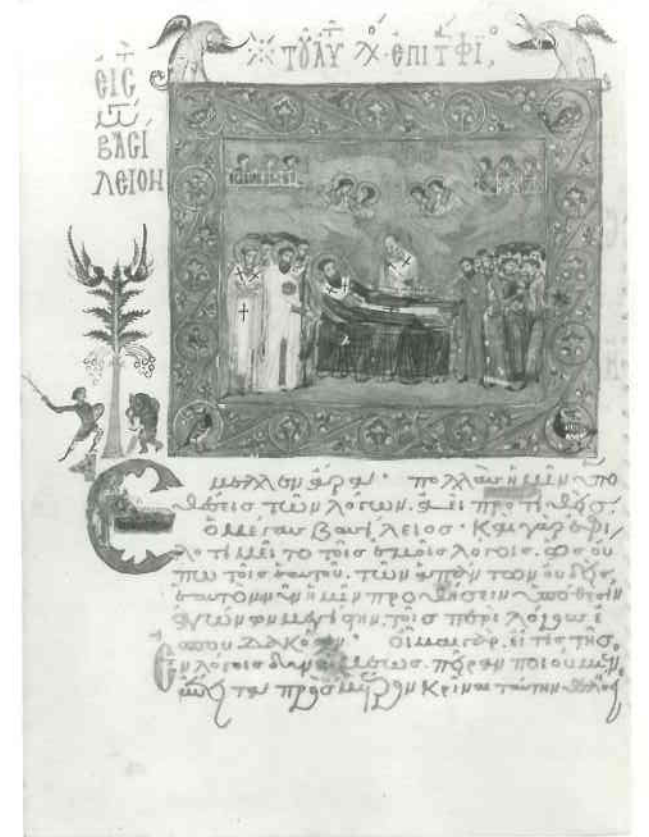 τοῦ αὐτ λό ἐπιτάφι,
εἰς
τὸν
βασί
λειον
Ἔμελλεν ἄρα· πολλὰς ἡμῖν ὑπο
θέσεις τῶν λόγων. ἀεὶ προτιθεὶς.
ὁ μέγας βασίλειος· Καὶ γὰρ ἐφι
λοτιμεῖτο τοῖς ἐμοῖς λόγοις. ὡς οὔ
πω τοῖς ἑαυτοῦ. τῶν ἁπάντων οὐδείς,
ἑαυτὸν νῦν ἡμῖν προθήσειν ὑπόθεσιν
ἀγώνων μεγίστην, τοῖς περὶ λόγους ἐ
σπουδακόσιν· οἶμαι γὰρ, εἴ τις τῆς
ἐν λόγοις δυνάμεως. πεῖραν ποιούμεν,
πρὸς κρῖναι ταύτην